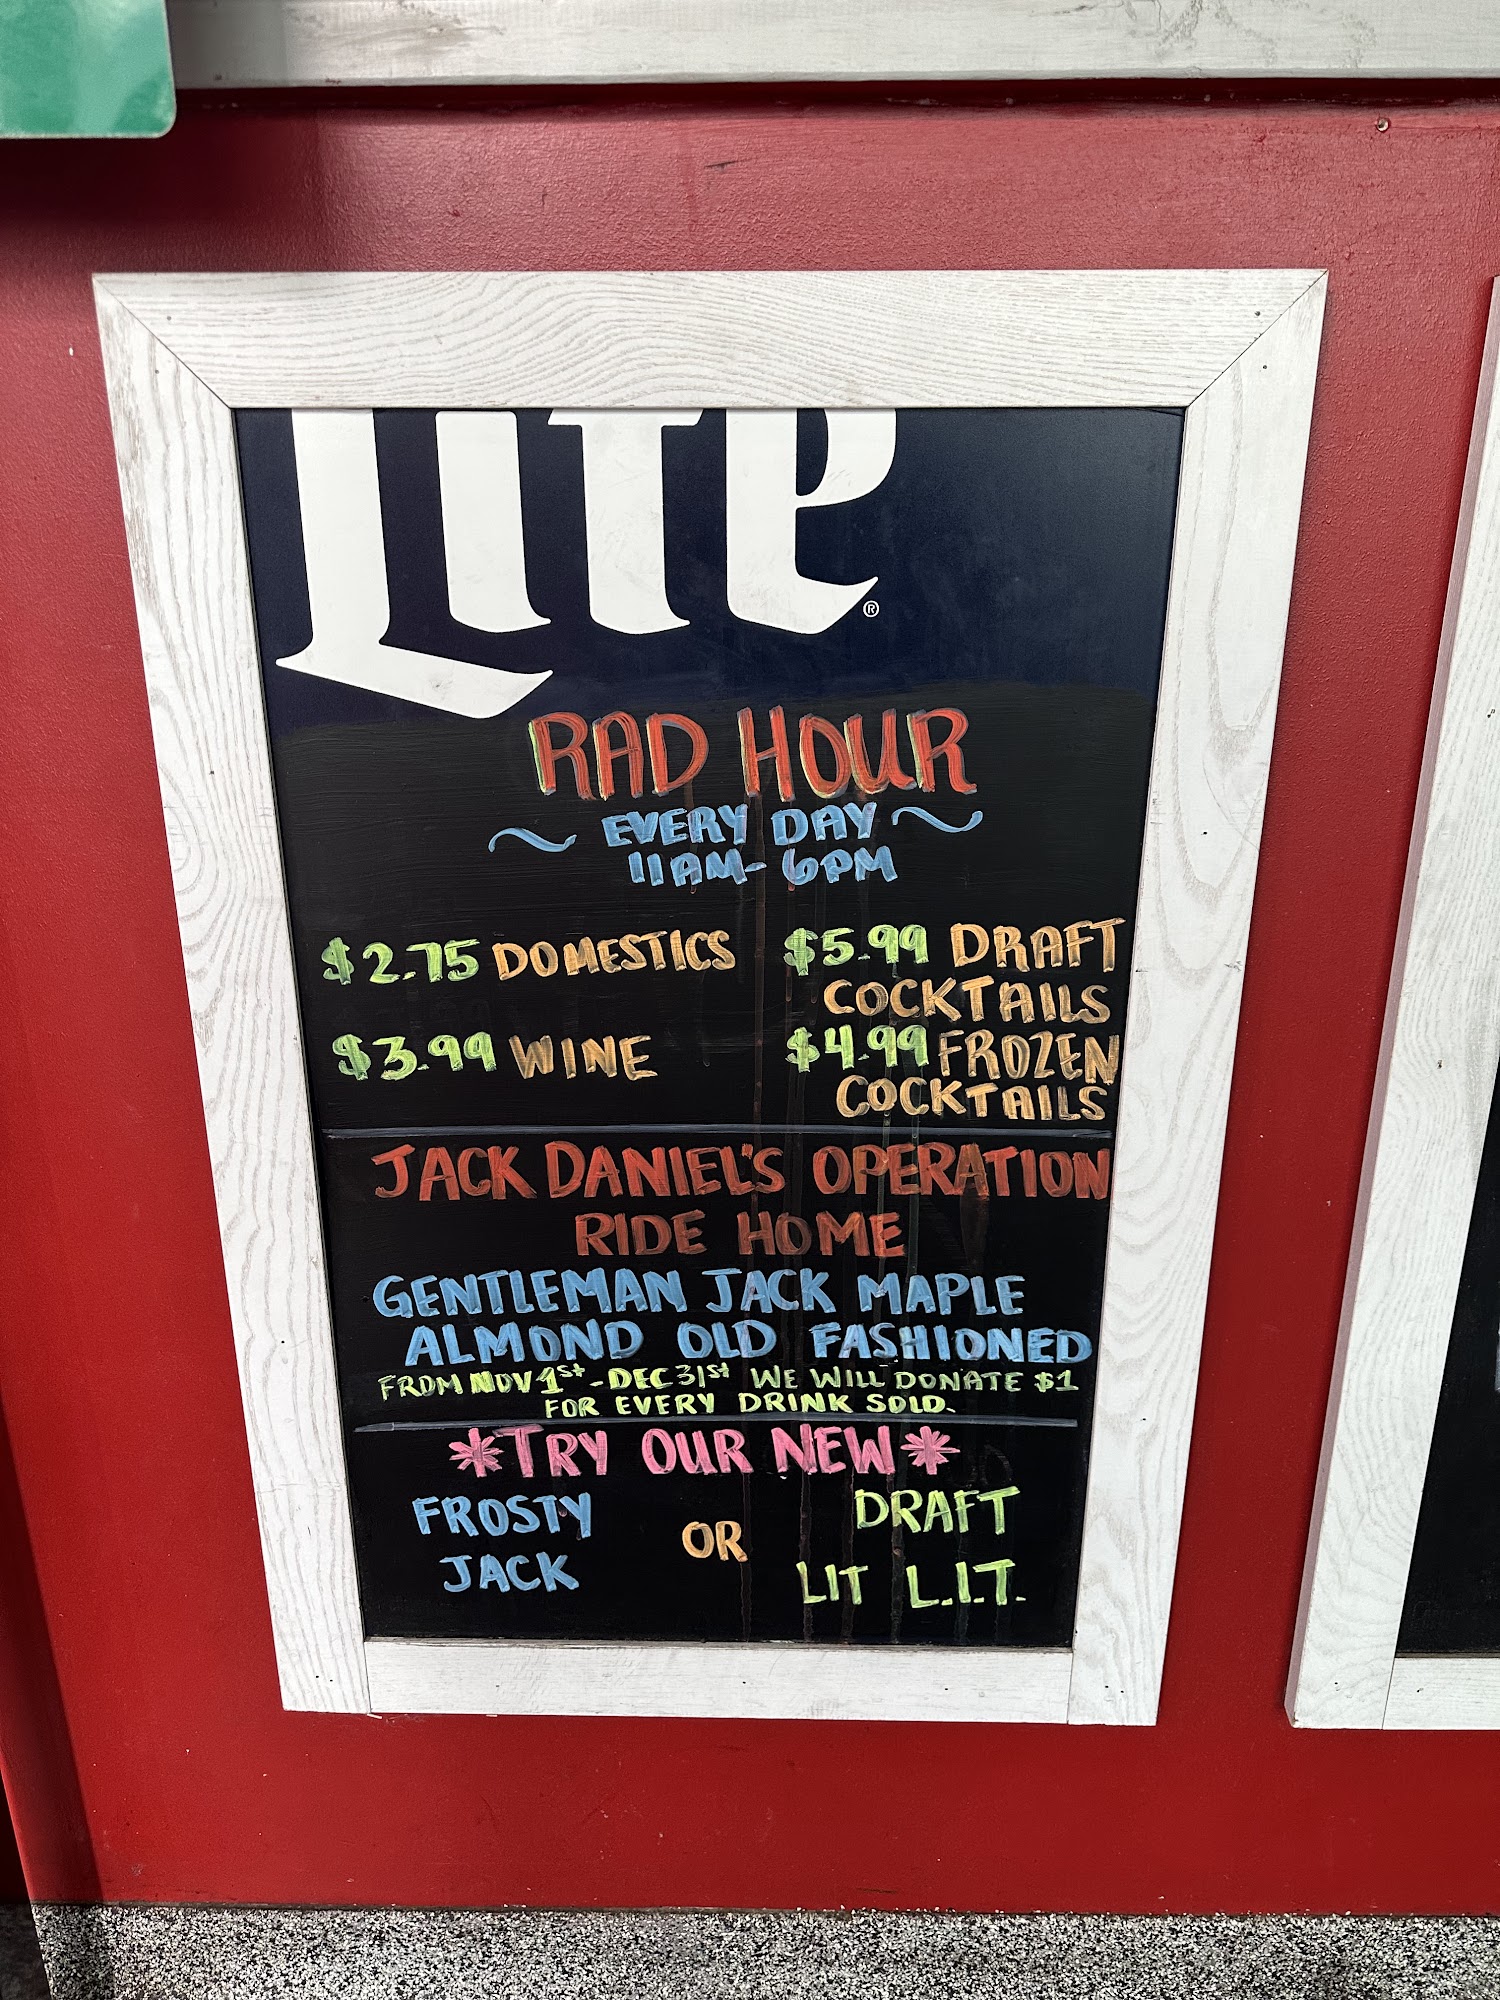 Lite®
RAD HOUR
~ EVERY DAY ~
11AM-6PM
$2.75 DOMESTICS
$3.99 WINE
$5.99 DRAFT
COCKTAILS
$4.99 FROZEN
COCKTAILS
JACK DANIEL'S OPERATION
RIDE HOME
GENTLEMAN JACK MAPLE
ALMOND OLD FASHIONED
FROM NOV 1st - DEC 31st WE WILL DONATE $1
FOR EVERY DRINK SOLD.
*TRY OUR NEW*
FROSTY
JACK
OR
DRAFT
LIT L.I.T.